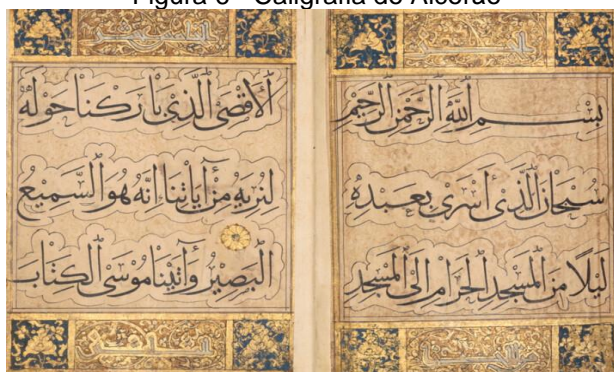 Figura - Caligrafia do Alcorão
بِسْمِ اللَّهِ الرَّحْمَنِ الرَّحِيمِ
سُبْحَانَ الَّذِي أَسْرَى بِعَبْدِهِ
لَيْلًا مِنَ الْمَسْجِدِ الْحَرَامِ إِلَى الْمَسْجِدِ
الْأَقْصَى الَّذِي بَارَكْنَا حَوْلَهُ
لِنُرِيَهُ مِنْ آيَاتِنَا إِنَّهُ هُوَ السَّمِيعُ
الْبَصِيرُ وَآتَيْنَا مُوسَى الْكِتَابَ